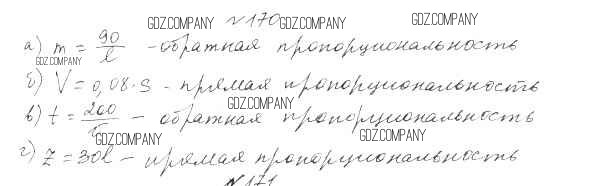 GDZ.COMPANY №170 GDZ.COMPANY GDZ.COMPANY
а) m = 90/l - обратная пропорциональность
GDZ.COMPANY
б) V = 0,08·S - прямая пропорциональность
GDZ.COMPANY
в) t = 200/v - обратная пропорциональность
GDZ.COMPANY GDZ.COMPANY
г) z = 30l - прямая пропорциональность
№171